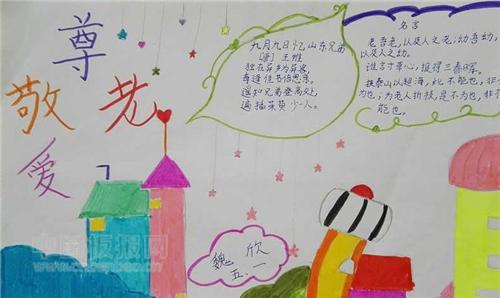 尊
敬老
爱
九月九日忆山东兄弟
[唐] 王维
独在异乡为异客,
每逢佳节倍思亲。
遥知兄弟登高处,
遍插茱萸少一人。
名言
老吾老,以及人之老;幼吾幼
以及人之幼。
谁言寸草心,报得三春晖。
挟泰山以超海,此不能也,非不
为也,为老人折枝,是不为也,非不
能也。
魏欣
五.一